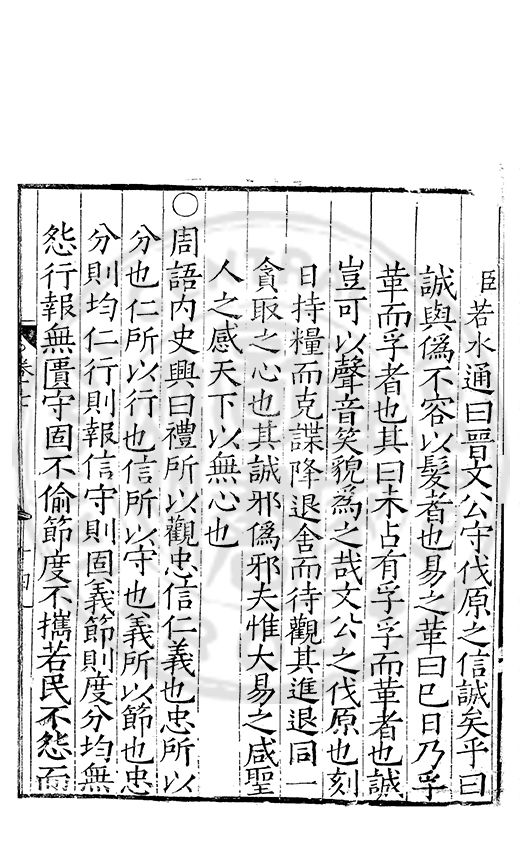 臣若水通曰晉文公守伐原之信誠矣乎曰
誠與僞不容以髮者也易之革曰巳日乃孚
革而孚者也其曰未占有孚孚而革者也誠
豈可以聲音笑貌爲之哉文公之伐原也刻
日持糧而克諜降退舍而待觀其進退同一
貪取之心也其誠邪僞邪夫惟大易之咸聖
人之感天下以無心也
○周語内史興曰禮所以觀忠信仁義也忠所以
分也仁所以行也信所以守也義所以節也忠
分則均仁行則報信守則固義節則度分均無
怨行報無匱守固不偷節度不攜若民不怨而